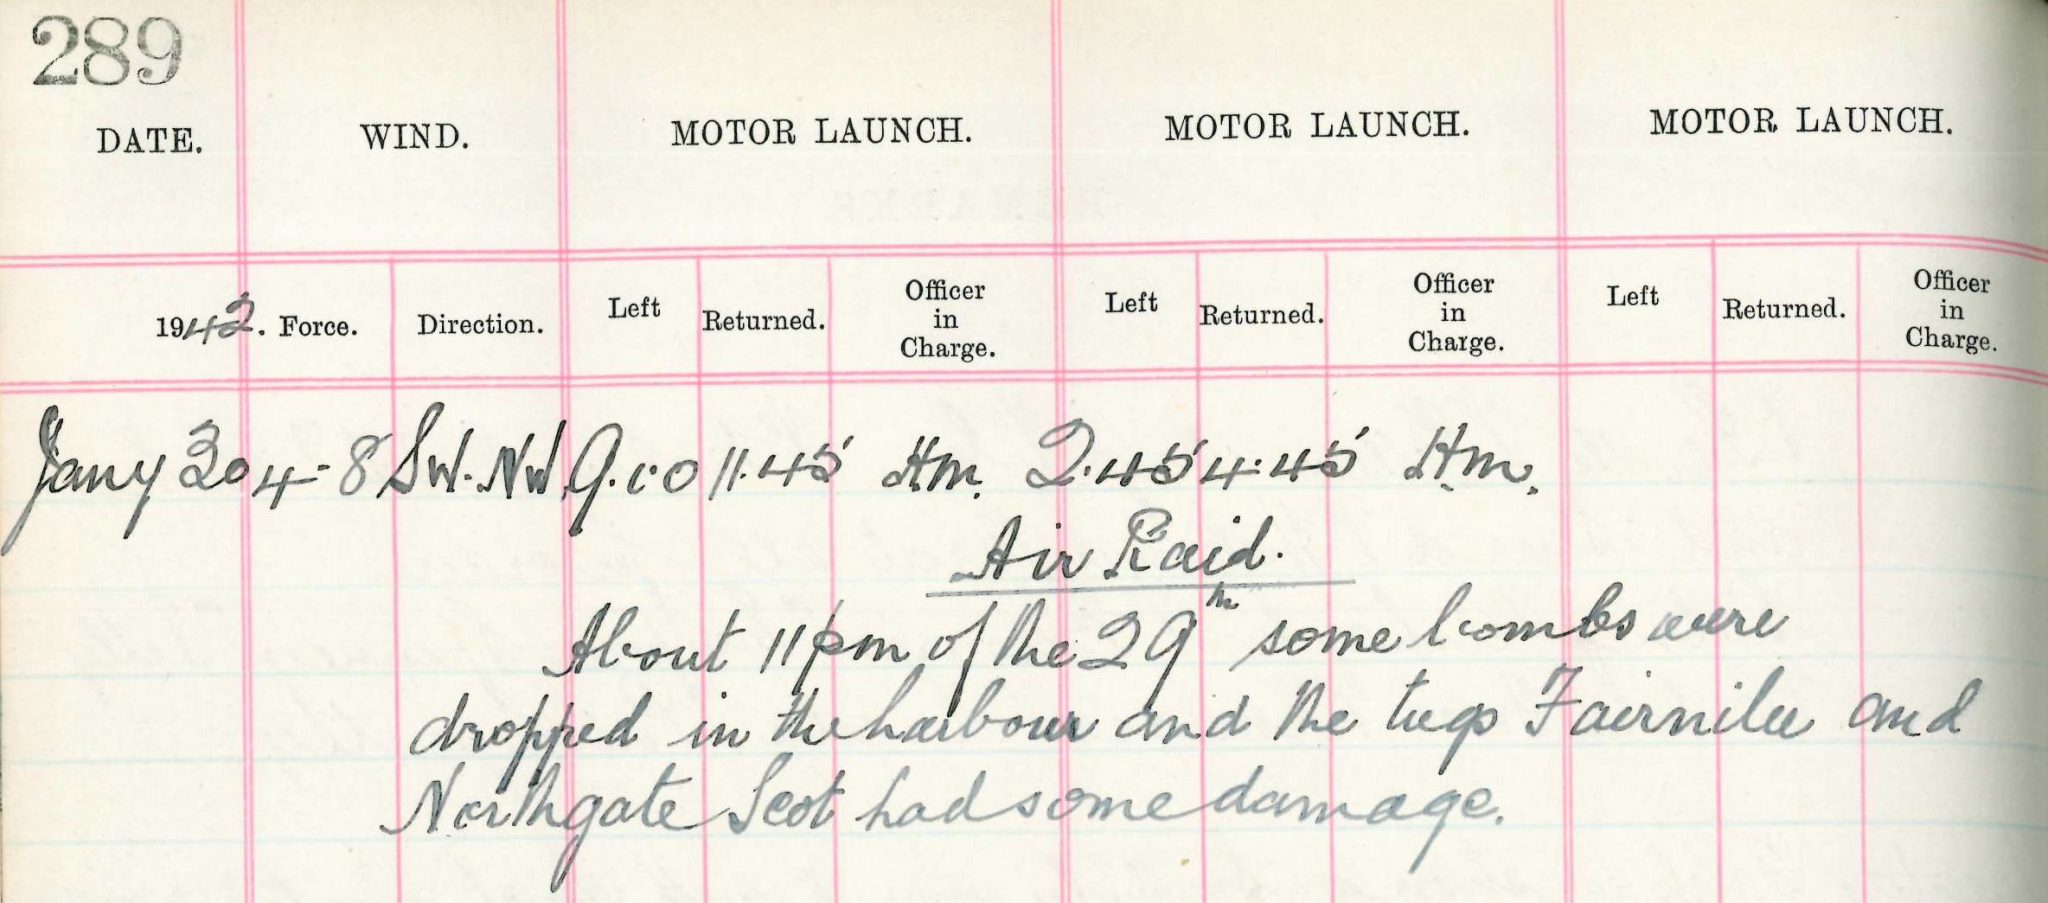 289
DATE. WIND. MOTOR LAUNCH. MOTOR LAUNCH. MOTOR LAUNCH.
1942. Force. Direction. Left Returned. Officer in Charge. Left Returned. Officer in Charge. Left Returned. Officer in Charge.
Jany 30 4-8 SW. NW 9.10 11.45 H.m. 2.45 4.45 H.m.
Air Raid.
About 11 pm of the 29th some bombs were
dropped in the harbour and the tugs Fairnilee and
Northgate Scot had some damage.